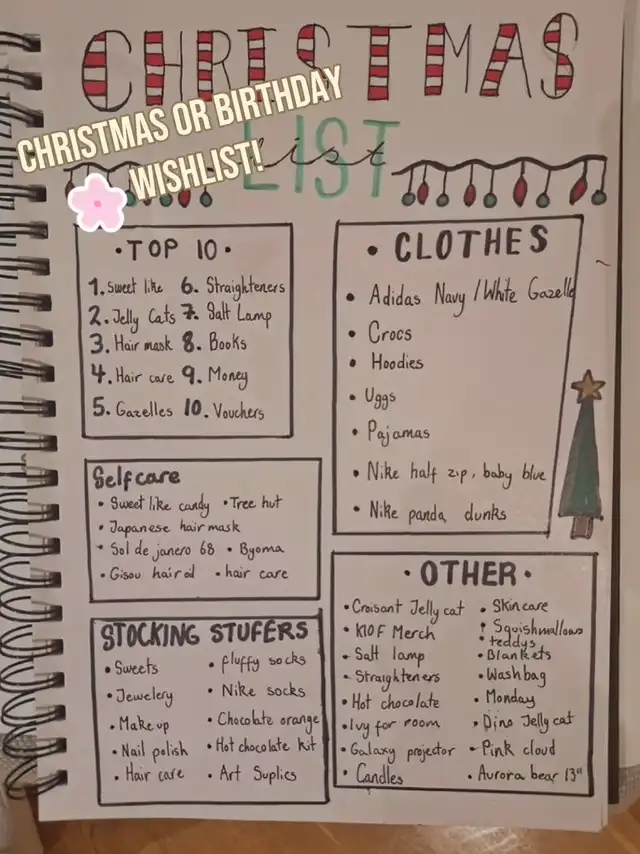 CHRISTMAS
LIST
list
CHRISTMAS OR BIRTHDAY
WISHLIST!
• TOP 10 •
1. Sweet like 6. Straighteners
2. Jelly Cats 7. Salt Lamp
3. Hair mask 8. Books
4. Hair care 9. Money
5. Gazelles 10. Vouchers
• CLOTHES
• Adidas Navy / White Gazelle
• Crocs
• Hoodies
• Uggs
• Pajamas
• Nike half zip, baby blue
• Nike panda dunks
Selfcare
• Sweet like candy • Tree hut
• Japanese hair mask
• Sol de janero 68 • Byoma
• Gisou hair oil • hair care
STOCKING STUFERS
• Sweets • fluffy socks
• Jewelery • Nike socks
• Make up • Chocolate orange
• Nail polish • Hot chocolate kit
• Hair care • Art Suplics
• OTHER •
• Croisant Jelly cat • Skincare
• KIOF Merch • Squishmallows
• teddys
• Salt lamp • Blankets
• Straighteners • Wash bag
• Hot chocolate • Monday
• Ivy for room • Dino Jelly cat
• Galaxy projector • Pink cloud
• Candles • Aurora bear 13"